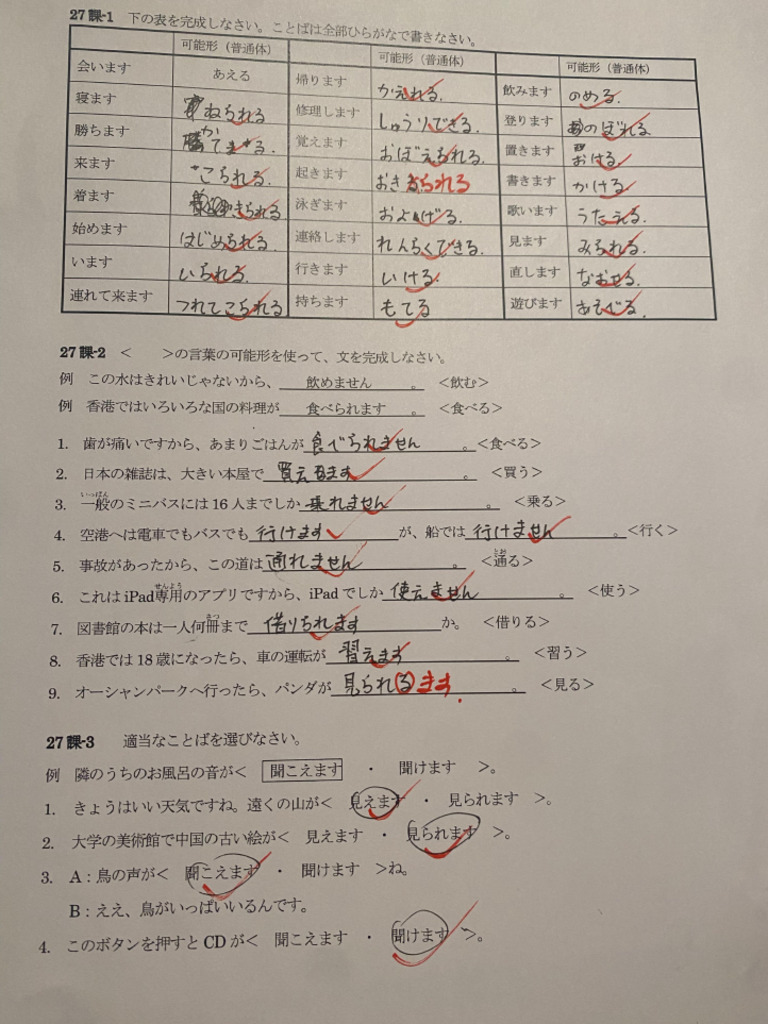 27課-1 下の表を完成しなさい。ことばは全部ひらがなで書きなさい。
可能形（普通体） 可能形（普通体） 可能形（普通体）
会います あえる 帰ります かえれる. 飲みます のめる.
寝ます ねられる 修理します しゅうりできる. 登ります のぼれる
勝ちます かてる. 覚えます おぼえられる. 置きます おける
来ます こられる. 起きます おきられる 書きます かける
着ます きられる 泳ぎます およげる. 歌います うたえる.
始めます はじめられる 連絡します れんらくできる. 見ます みられる.
います いられる. 行きます いける. 直します なおせる.
連れて来ます つれてこられる 持ちます もてる 遊びます あそべる.
27課-2 ＜ ＞の言葉の可能形を使って、文を完成しなさい。
例 この水はきれいじゃないから、 飲めません 。 ＜飲む＞
例 香港ではいろいろな国の料理が 食べられます 。 ＜食べる＞
1. 歯が痛いですから、あまりごはんが 食べられません 。＜食べる＞
2. 日本の雑誌は、大きい本屋で 買えます 。 ＜買う＞
いっぱん
3. 一般のミニバスには 16 人までしか 乗れません 。 ＜乗る＞
4. 空港へは電車でもバスでも 行けます が、船では 行けません 。＜行く＞
とお
5. 事故があったから、この道は 通れません 。 ＜通る＞
せんよう
6. これは iPad専用のアプリですから、iPad でしか 使えません 。 ＜使う＞
さつ
7. 図書館の本は一人何冊まで 借りられます か。 ＜借りる＞
8. 香港では 18 歳になったら、車の運転が 習えます 。 ＜習う＞
9. オーシャンパークへ行ったら、パンダが 見られる ます. 。 ＜見る＞
27課-3 適当なことばを選びなさい。
例 隣のうちのお風呂の音が＜ 聞こえます ・ 聞けます ＞。
1. きょうはいい天気ですね。遠くの山が＜ 見えます ・ 見られます ＞。
2. 大学の美術館で中国の古い絵が＜ 見えます ・ 見られます ＞。
3. A：鳥の声が＜ 聞こえます ・ 聞けます ＞ね。
B：ええ、鳥がいっぱいいるんです。
4. このボタンを押すと CD が＜ 聞こえます ・ 聞けます ＞。